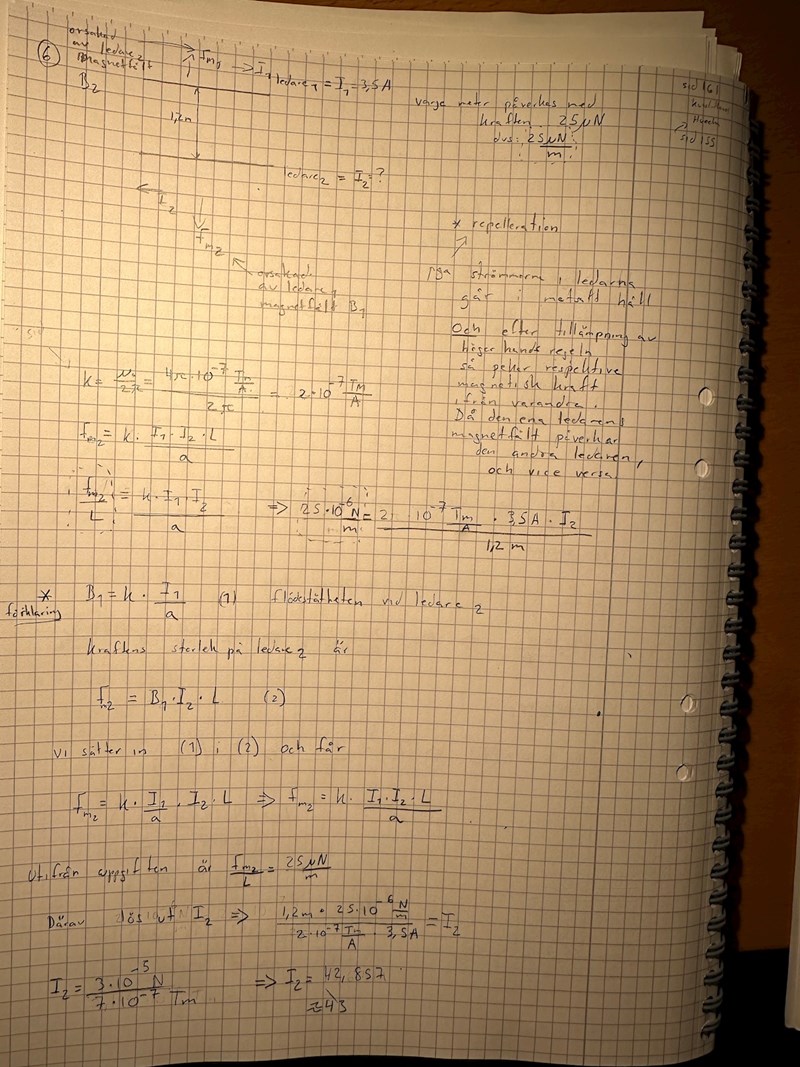 6
orsakad
av ledare 2
magnetfält
B₂
Fm₁
→ I₁
ledare₁ = I₁ = 3,5A
1,2m
ledare₂ = I₂ = ?
I₂
Fm₂
orsakad
av ledare₁
magnetfält B₁
varje meter påverkas med
kraften 25 µN
dvs: 25 µN/m
sid 161
sid 155
* repelleration
pga strömmarna i ledarna
går i motsatt håll
Och efter tillämpning av
höger hands regeln
så pekar respektive
magnetisk kraft
ifrån varandra.
Då den ena ledarens
magnetfält påverkar
den andra ledaren,
och vice versa
k = µ₀/2π = 4π·10⁻⁷ Tm/A / 2π = 2·10⁻⁷ Tm/A
Fm₂ = k · I₁ · I₂ · L / a
Fm₂/L = k · I₁ · I₂ / a => 25·10⁻⁶ N/m = 2 · 10⁻⁷ Tm/A · 3,5A · I₂ / 1,2 m
* förklaring
B₁ = k · I₁/a (1) flödestätheten vid ledare 2
kraftens storlek på ledare 2 är
Fm₂ = B₁ · I₂ · L (2)
vi sätter in (1) i (2) och får
Fm₂ = k · I₁/a · I₂ · L => Fm₂ = k · I₁ · I₂ · L / a
Utifrån uppgiften är Fm₂/L = 25 µN/m
Därav lös ut I₂ => 1,2m · 25·10⁻⁶ N/m / 2·10⁻⁷ Tm/A · 3,5A = I₂
I₂ = 3·10⁻⁵ N / 7·10⁻⁷ Tm => I₂ = 42,857
≈ 43